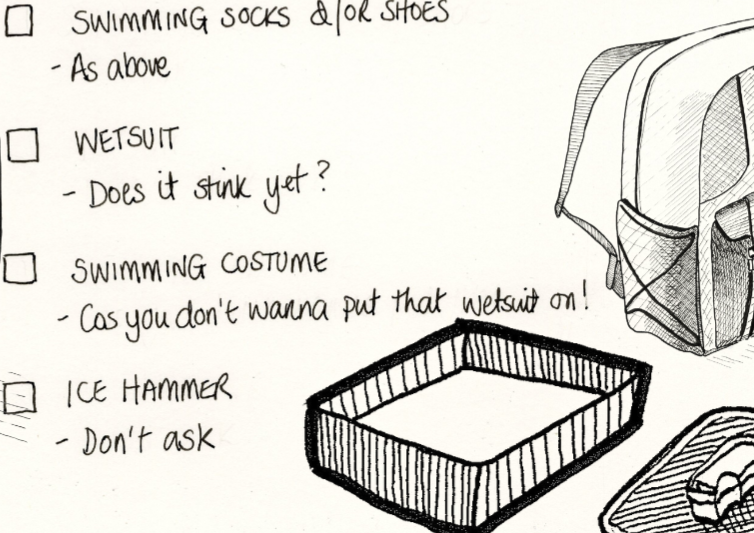 SWIMMING SOCKS &/OR SHOES
- As above
WETSUIT
- Does it stink yet?
SWIMMING COSTUME
- Cos you don't wanna put that wetsuit on!
ICE HAMMER
- Don't ask